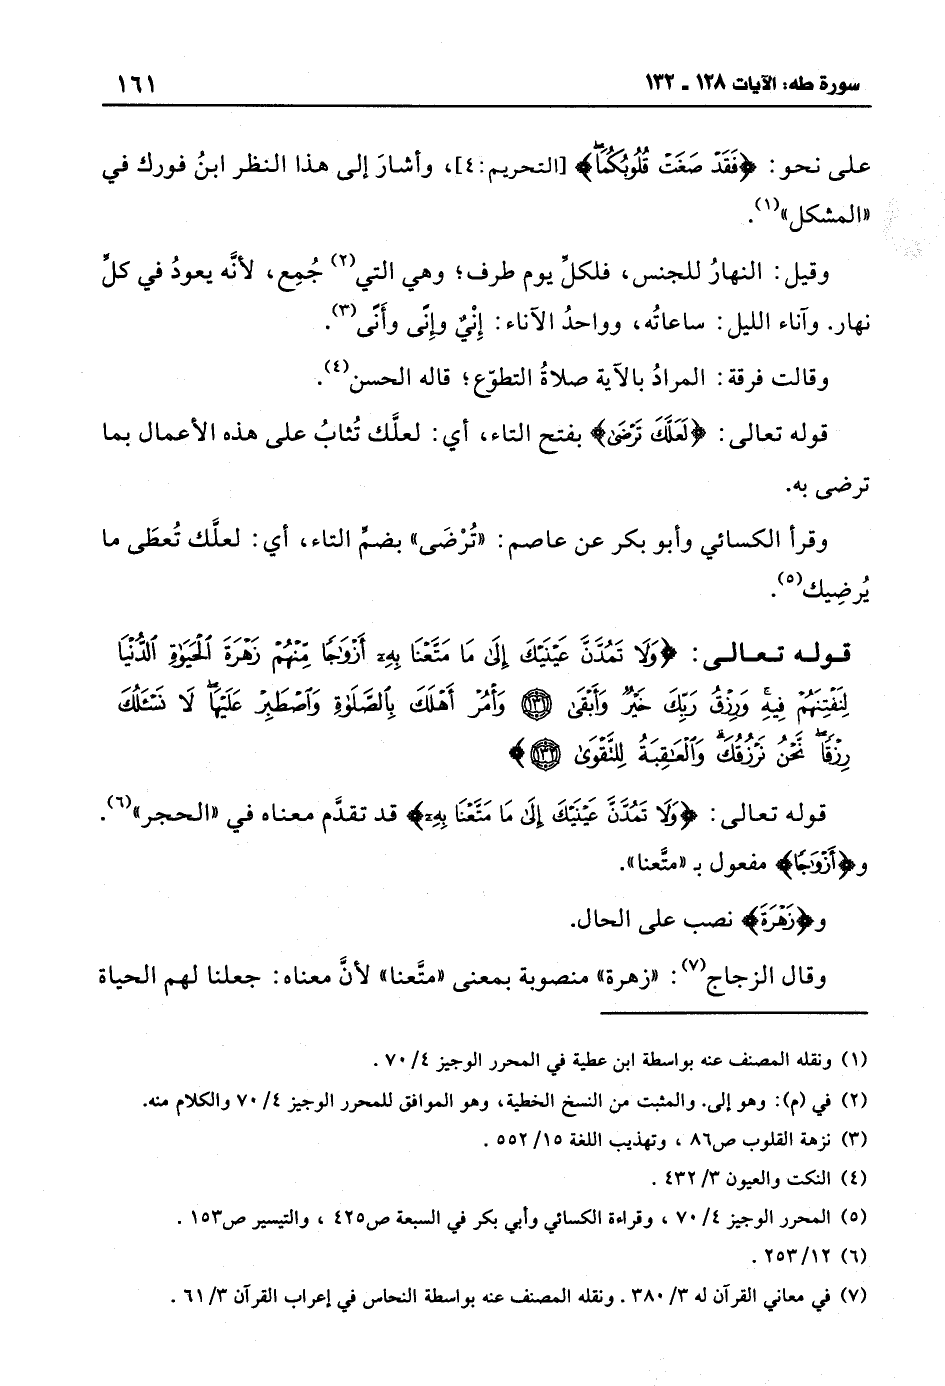 سورة طه: الآيات ١٢٨ - ١٣٢
١٦١
على نحو: ﴿فَقَدْ صَغَتْ قُلُوبُكُمَا﴾ [التحريم:٤]، وأشارَ إلى هذا النظر ابنُ فورك في
«المشكل»(١).
وقيل: النهارُ للجنس، فلكلِّ يوم طرف؛ وهي التي(٢) جُمِع، لأنَّه يعودُ في كلِّ
نهار. وآناء الليل: ساعاتُه، وواحدُ الآناء: إِنْيٌ وإِنًى وأَنًى(٣).
وقالت فرقة: المرادُ بالآية صلاةُ التطوّع؛ قاله الحسن(٤).
قوله تعالى: ﴿لَعَلَّكَ تَرْضَى﴾ بفتح التاء، أي: لعلَّك تُثابُ على هذه الأعمال بما
ترضى به.
وقرأ الكسائي وأبو بكر عن عاصم: «تُرْضَى» بضمِّ التاء، أي: لعلَّك تُعطَى ما
يُرضِيك(٥).
قوله تعالى: ﴿وَلَا تَمُدَّنَّ عَيْنَيْكَ إِلَى مَا مَتَّعْنَا بِهِۦٓ أَزْوَٰجًا مِّنْهُمْ زَهْرَةَ الْحَيَوٰةِ الدُّنْيَا
لِنَفْتِنَهُمْ فِيهِ وَرِزْقُ رَبِّكَ خَيْرٌ وَأَبْقَى ١٣١ وَأْمُرْ أَهْلَكَ بِالصَّلَوٰةِ وَاصْطَبِرْ عَلَيْهَا لَا نَسْـَٔلُكَ
رِزْقًا نَّحْنُ نَرْزُقُكَ وَالْعَٰقِبَةُ لِلتَّقْوَى ١٣٢﴾
قوله تعالى: ﴿وَلَا تَمُدَّنَّ عَيْنَيْكَ إِلَى مَا مَتَّعْنَا بِهِۦٓ﴾ قد تقدَّم معناه في «الحجر»(٦).
و﴿أَزْوَٰجًا﴾ مفعول بـ «متَّعنا».
و﴿زَهْرَةَ﴾ نصب على الحال.
وقال الزجاج(٧): «زهرة» منصوبة بمعنى «متَّعنا» لأنَّ معناه: جعلنا لهم الحياة
(١) ونقله المصنف عنه بواسطة ابن عطية في المحرر الوجيز ٤/ ٧٠ .
(٢) في (م): وهو إلى. والمثبت من النسخ الخطية، وهو الموافق للمحرر الوجيز ٤/ ٧٠ والكلام منه.
(٣) نزهة القلوب ص٨٦ ، وتهذيب اللغة ١٥/ ٥٥٢ .
(٤) النكت والعيون ٣/ ٤٣٢ .
(٥) المحرر الوجيز ٤/ ٧٠ ، وقراءة الكسائي وأبي بكر في السبعة ص٤٢٥ ، والتيسير ص١٥٣ .
(٦) ١٢/ ٢٥٣ .
(٧) في معاني القرآن له ٣/ ٣٨٠ . ونقله المصنف عنه بواسطة النحاس في إعراب القرآن ٣/ ٦١ .